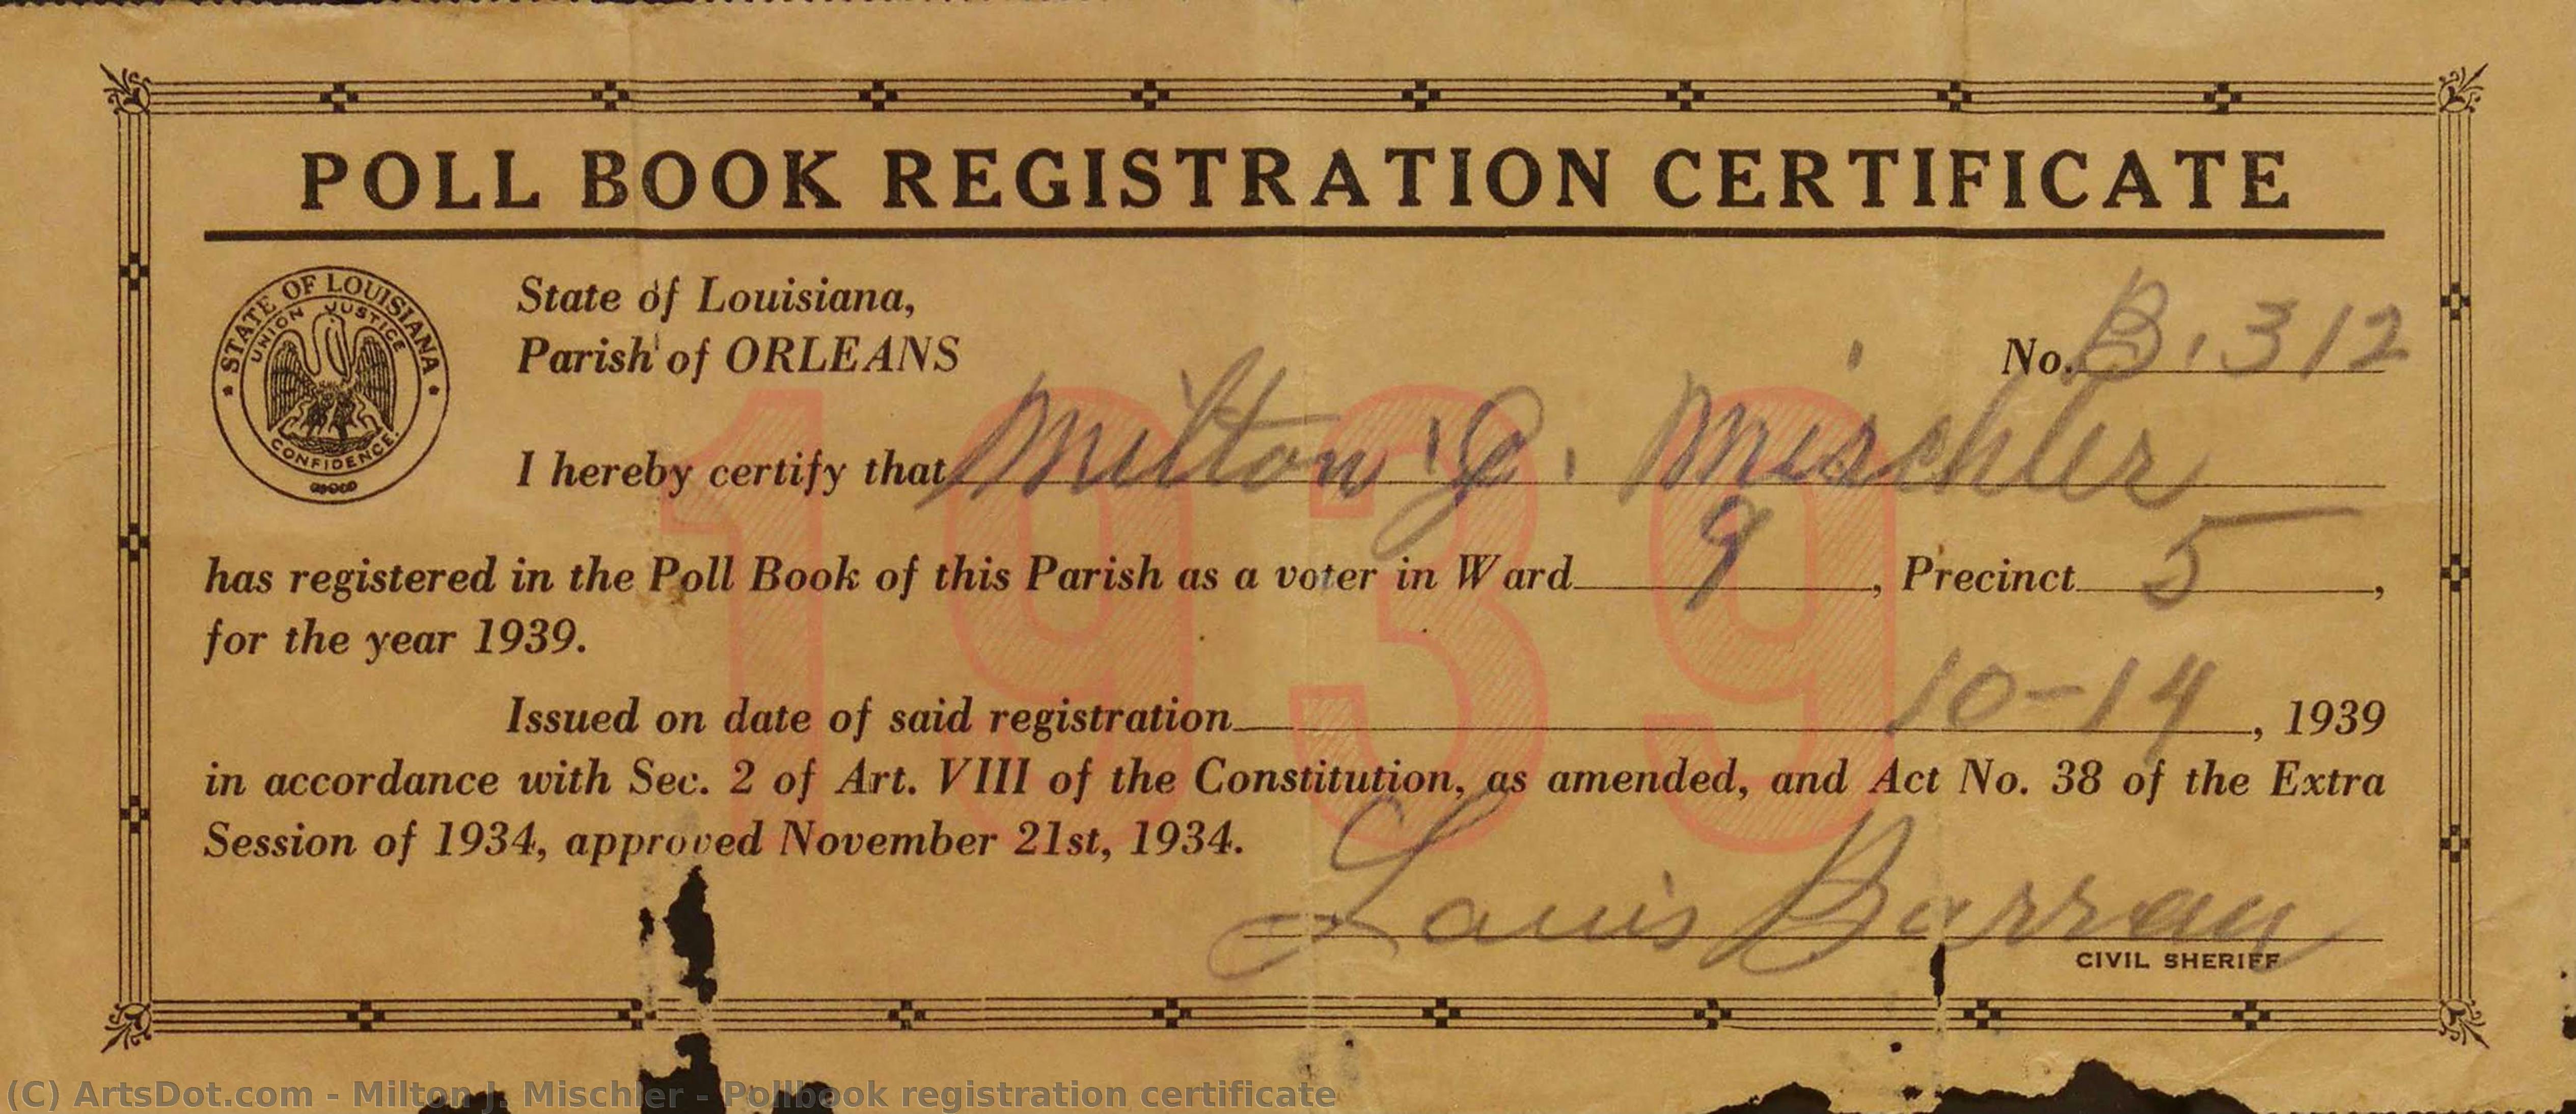 POLL BOOK REGISTRATION CERTIFICATE
STATE OF LOUISIANA
UNION JUSTICE
CONFIDENCE.
State of Louisiana,
Parish of ORLEANS
No. B. 312
1939
I hereby certify that Milton J. Mischler
has registered in the Poll Book of this Parish as a voter in Ward 9, Precinct 5,
for the year 1939.
Issued on date of said registration 10-14, 1939
in accordance with Sec. 2 of Art. VIII of the Constitution, as amended, and Act No. 38 of the Extra
Session of 1934, approved November 21st, 1934.
Louis
CIVIL SHERIFF
(C) ArtsDot.com - Milton J. Mischler - Pollbook registration certificate